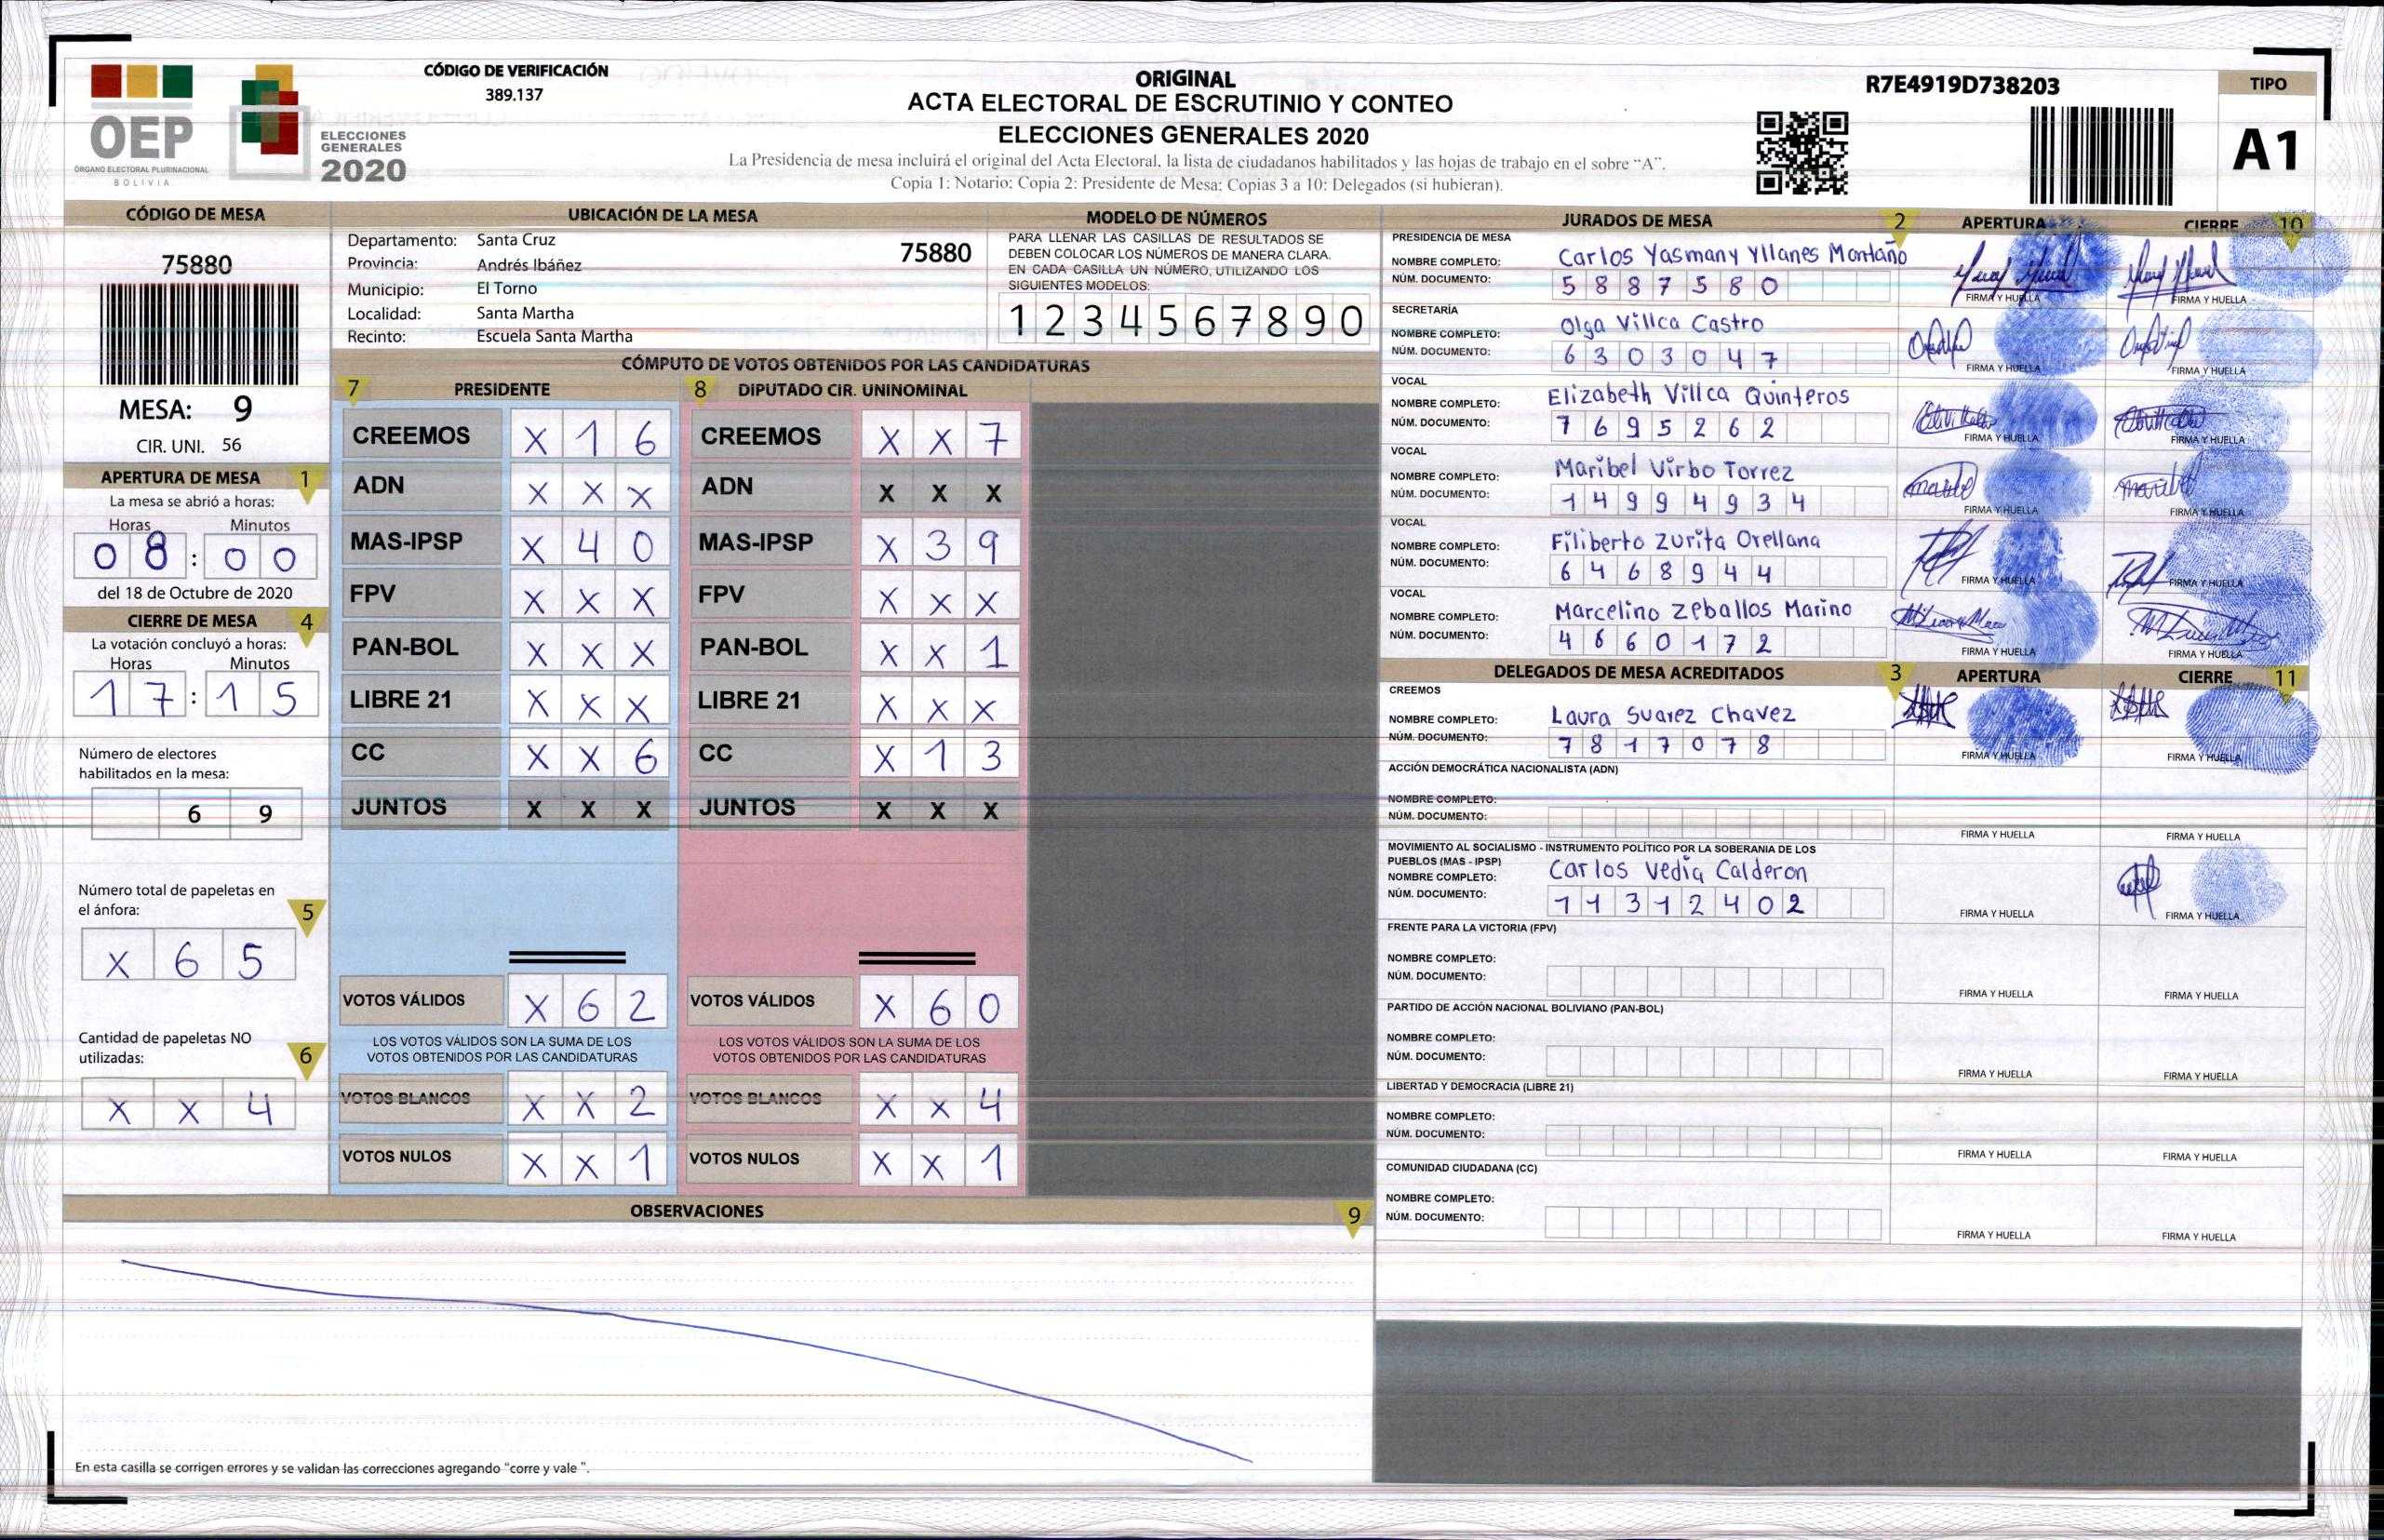 CÓDIGO DE VERIFICACIÓN
389.137
OEP
ÓRGANO ELECTORAL PLURINACIONAL
BOLIVIA
ELECCIONES
GENERALES
2020
ORIGINAL
ACTA ELECTORAL DE ESCRUTINIO Y CONTEO
ELECCIONES GENERALES 2020
La Presidencia de mesa incluirá el original del Acta Electoral, la lista de ciudadanos habilitados y las hojas de trabajo en el sobre “A”.
Copia 1: Notario: Copia 2: Presidente de Mesa: Copias 3 a 10: Delegados (si hubieran).
R7E4919D738203
TIPO
A1
CÓDIGO DE MESA
75880
MESA: 9
CIR. UNI. 56
APERTURA DE MESA 1
La mesa se abrió a horas:
Horas Minutos
08:00
del 18 de Octubre de 2020
CIERRE DE MESA 4
La votación concluyó a horas:
Horas Minutos
17:15
Número de electores
habilitados en la mesa:
6 9
Número total de papeletas en
el ánfora: 5
X 6 5
Cantidad de papeletas NO
utilizadas: 6
X X 4
UBICACIÓN DE LA MESA
Departamento: Santa Cruz 75880
Provincia: Andrés Ibáñez
Municipio: El Torno
Localidad: Santa Martha
Recinto: Escuela Santa Martha
MODELO DE NÚMEROS
PARA LLENAR LAS CASILLAS DE RESULTADOS SE
DEBEN COLOCAR LOS NÚMEROS DE MANERA CLARA.
EN CADA CASILLA UN NÚMERO, UTILIZANDO LOS
SIGUIENTES MODELOS:
1 2 3 4 5 6 7 8 9 0
CÓMPUTO DE VOTOS OBTENIDOS POR LAS CANDIDATURAS
7 PRESIDENTE 8 DIPUTADO CIR. UNINOMINAL
CREEMOS X 1 6 CREEMOS X X 7
ADN X X X ADN X X X
MAS-IPSP X 4 0 MAS-IPSP X 3 9
FPV X X X FPV X X X
PAN-BOL X X X PAN-BOL X X 1
LIBRE 21 X X X LIBRE 21 X X X
CC X X 6 CC X 1 3
JUNTOS X X X JUNTOS X X X
VOTOS VÁLIDOS X 6 2 VOTOS VÁLIDOS X 6 0
LOS VOTOS VÁLIDOS SON LA SUMA DE LOS LOS VOTOS VÁLIDOS SON LA SUMA DE LOS
VOTOS OBTENIDOS POR LAS CANDIDATURAS VOTOS OBTENIDOS POR LAS CANDIDATURAS
VOTOS BLANCOS X X 2 VOTOS BLANCOS X X 4
VOTOS NULOS X X 1 VOTOS NULOS X X 1
OBSERVACIONES 9
En esta casilla se corrigen errores y se validan las correcciones agregando “corre y vale ”.
JURADOS DE MESA 2 APERTURA CIERRE 10
PRESIDENCIA DE MESA
NOMBRE COMPLETO: Carlos Yasmany Yllanes Montaño
NÚM. DOCUMENTO: 5 8 8 7 5 8 0
FIRMA Y HUELLA FIRMA Y HUELLA
SECRETARÍA
NOMBRE COMPLETO: Olga Villca Castro
NÚM. DOCUMENTO: 6 3 0 3 0 4 7
FIRMA Y HUELLA FIRMA Y HUELLA
VOCAL
NOMBRE COMPLETO: Elizabeth Villca Quinteros
NÚM. DOCUMENTO: 7 6 9 5 2 6 2
FIRMA Y HUELLA FIRMA Y HUELLA
VOCAL
NOMBRE COMPLETO: Maribel Virbo Torrez
NÚM. DOCUMENTO: 1 4 9 9 4 9 3 4
FIRMA Y HUELLA FIRMA Y HUELLA
VOCAL
NOMBRE COMPLETO: Filiberto Zurita Orellana
NÚM. DOCUMENTO: 6 4 6 8 9 4 4
FIRMA Y HUELLA FIRMA Y HUELLA
VOCAL
NOMBRE COMPLETO: Marcelino Zeballos Marino
NÚM. DOCUMENTO: 4 6 6 0 1 7 2
FIRMA Y HUELLA FIRMA Y HUELLA
DELEGADOS DE MESA ACREDITADOS 3 APERTURA CIERRE 11
CREEMOS
NOMBRE COMPLETO: Laura Suarez Chavez
NÚM. DOCUMENTO: 7 8 1 7 0 7 8
FIRMA Y HUELLA FIRMA Y HUELLA
ACCIÓN DEMOCRÁTICA NACIONALISTA (ADN)
NOMBRE COMPLETO:
NÚM. DOCUMENTO:
FIRMA Y HUELLA FIRMA Y HUELLA
MOVIMIENTO AL SOCIALISMO - INSTRUMENTO POLÍTICO POR LA SOBERANIA DE LOS
PUEBLOS (MAS - IPSP)
NOMBRE COMPLETO: Carlos Vedia Calderon
NÚM. DOCUMENTO: 1 1 3 1 2 4 0 2
FIRMA Y HUELLA FIRMA Y HUELLA
FRENTE PARA LA VICTORIA (FPV)
NOMBRE COMPLETO:
NÚM. DOCUMENTO:
FIRMA Y HUELLA FIRMA Y HUELLA
PARTIDO DE ACCIÓN NACIONAL BOLIVIANO (PAN-BOL)
NOMBRE COMPLETO:
NÚM. DOCUMENTO:
FIRMA Y HUELLA FIRMA Y HUELLA
LIBERTAD Y DEMOCRACIA (LIBRE 21)
NOMBRE COMPLETO:
NÚM. DOCUMENTO:
FIRMA Y HUELLA FIRMA Y HUELLA
COMUNIDAD CIUDADANA (CC)
NOMBRE COMPLETO:
NÚM. DOCUMENTO:
FIRMA Y HUELLA FIRMA Y HUELLA